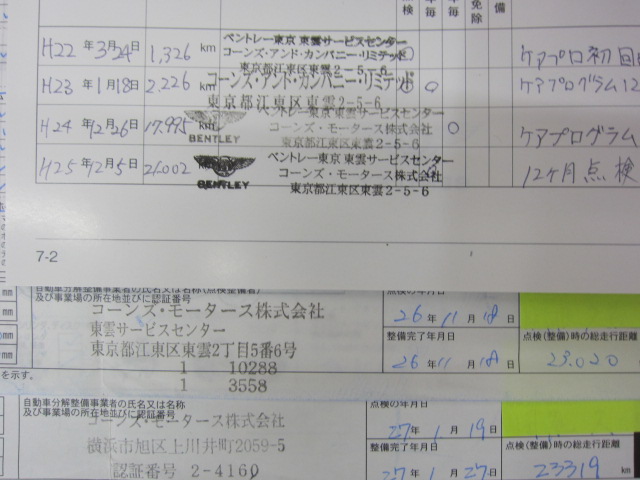 検 毎 毎 免除 備
H22年3月24日 1,326 km ベントレー東京 東雲サービスセンター
コーンズ・アンド・カンパニー・リミテッド
東京都江東区東雲2-5-6
ケアプロ初回
H23年1月18日 2,226 km コーンズ・アンド・カンパニー・リミテッド
東京都江東区東雲2-5-6
ケアプログラム12
H24年12月26日 17.995 km ベントレー東京 東雲サービスセンター
BENTLEY コーンズ・モータース株式会社
東京都江東区東雲2-5-6
ケアプログラム
H25年12月5日 21.002 ベントレー東京 東雲サービスセンター
BENTLEY コーンズ・モータース株式会社
東京都江東区東雲2-5-6
12ヶ月点検
7-2
自動車分解整備事業者の氏名又は名称(点検整備者)
及び事業場の所在地並びに認証番号
コーンズ・モータース株式会社
東雲サービスセンター
東京都江東区東雲2丁目5番6号
1 10288
1 3558
点検の年月日
26年11月18日
整備完了年月日
26年11月18日
点検(整備)時の総走行距離
23.020
を示す。
自動車分解整備事業者の氏名又は名称
及び事業場の所在地並びに認証番号
コーンズ・モータース株式会社
横浜市旭区上川井町2059-5
認証番号 2-4160
点検の年月日
27年1月19日
整備完了年月日
27年1月27日
点検(整備)時の総走行距離
23319 km